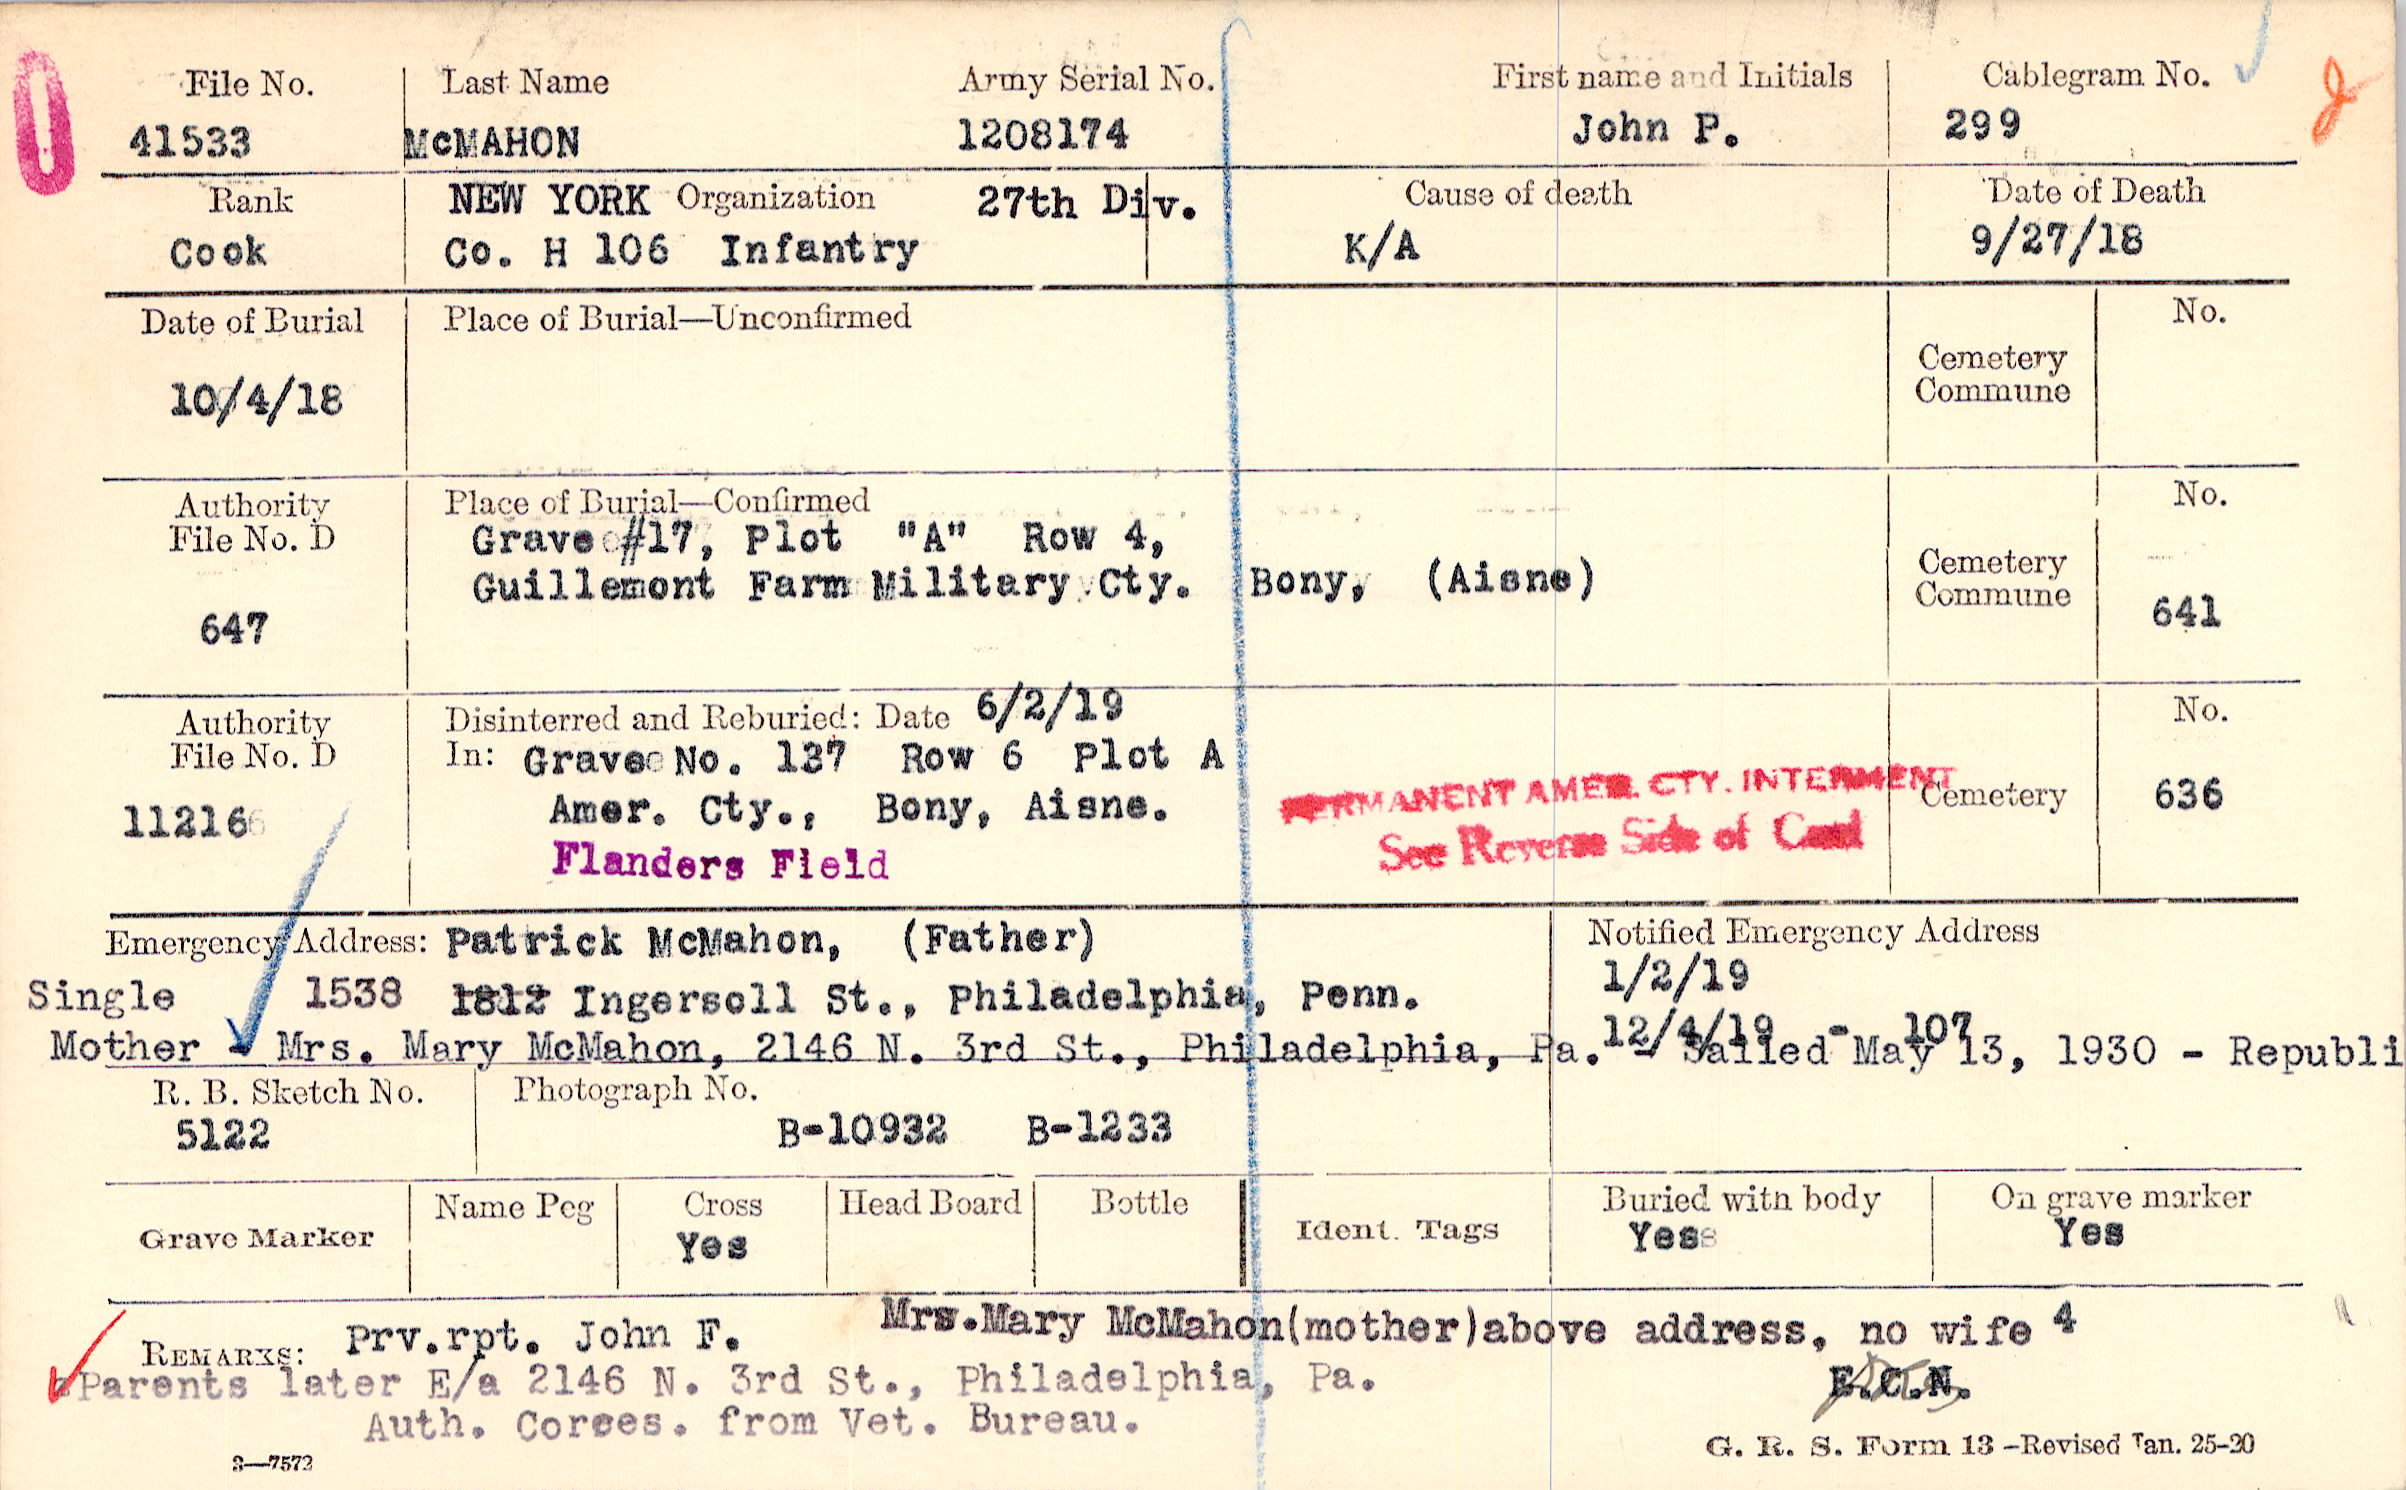 File No. Last Name Army Serial No. First name and Initials Cablegram No.
41533 McMAHON 1208174 John P. 299
Rank NEW YORK Organization 27th Div. Cause of death Date of Death
Cook Co. H 106 Infantry K/A 9/27/18
Date of Burial Place of Burial—Unconfirmed No.
Cemetery
Commune
10/4/18
Authority Place of Burial—Confirmed No.
File No. D Grave #17, Plot "A" Row 4,
Guillemont Farm Military Cty. Bony, (Aisne) Cemetery
Commune
647 641
Authority Disinterred and Reburied: Date 6/2/19 No.
File No. D In: Grave No. 137 Row 6 Plot A
PERMANENT AMER. CTY. INTERMENT
112166 Amer. Cty., Bony, Aisne. Cemetery 636
See Reverse Side of Card
Flanders Field
Emergency Address: Patrick McMahon, (Father) Notified Emergency Address
1/2/19
Single 1538 1812 Ingersoll St., Philadelphia, Penn.
12/4/19 - 107
Mother - Mrs. Mary McMahon, 2146 N. 3rd St., Philadelphia, Pa. - Sailed May 13, 1930 - Republi
R. B. Sketch No. Photograph No.
5122 B-10932 B-1233
Grave Marker Name Peg Cross Head Board Bottle Ident. Tags Buried with body On grave marker
Yes Yes Yes
Mrs.Mary McMahon(mother)above address, no wife 4
REMARKS: Prv.rpt. John F.
Parents later E/a 2146 N. 3rd St., Philadelphia, Pa. E.C.N.
Auth. Corres. from Vet. Bureau.
3—7572 G. R. S. Form 13 -Revised Jan. 25-20